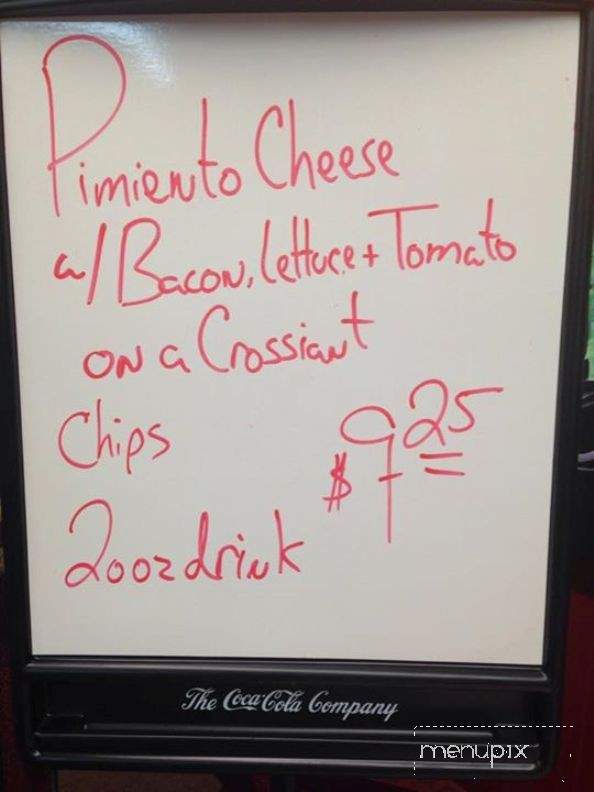 Pimiento Cheese
w/Bacon, lettuce + Tomato
on a Crossiant
Chips
$9.25
20oz drink
The Coca-Cola Company
menupix